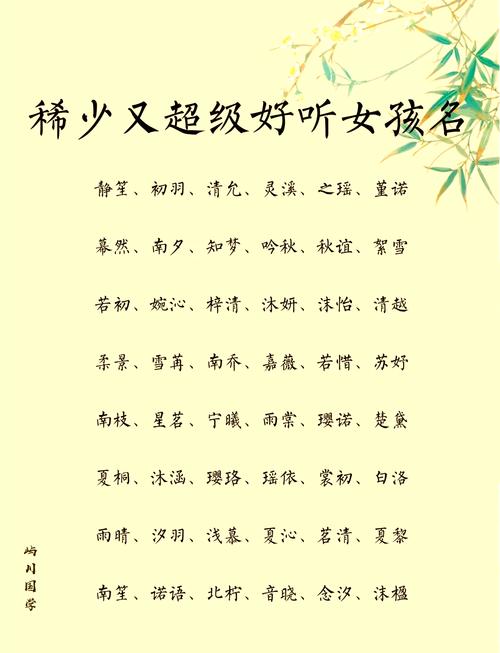 稀少又超级好听女孩名
静笙、初羽、清允、灵溪、之瑶、堇诺
蓦然、南夕、知梦、吟秋、秋谊、絮雪
若初、婉沁、梓清、沐妍、沫怡、清越
柔景、雪苒、南乔、嘉薇、若惜、苏妤
南枝、星茗、宁曦、雨棠、璎诺、楚黛
夏桐、沐涵、璎珞、瑶依、裳初、白洛
雨晴、汐羽、浅慕、夏沁、茗清、夏黎
南笙、诺语、北柠、音晓、念汐、沫楹
屿川国学